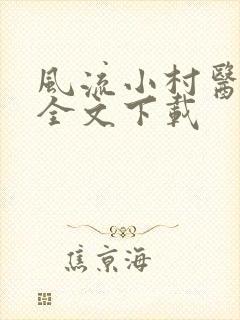 風流小村醫
全文下載
焦京海